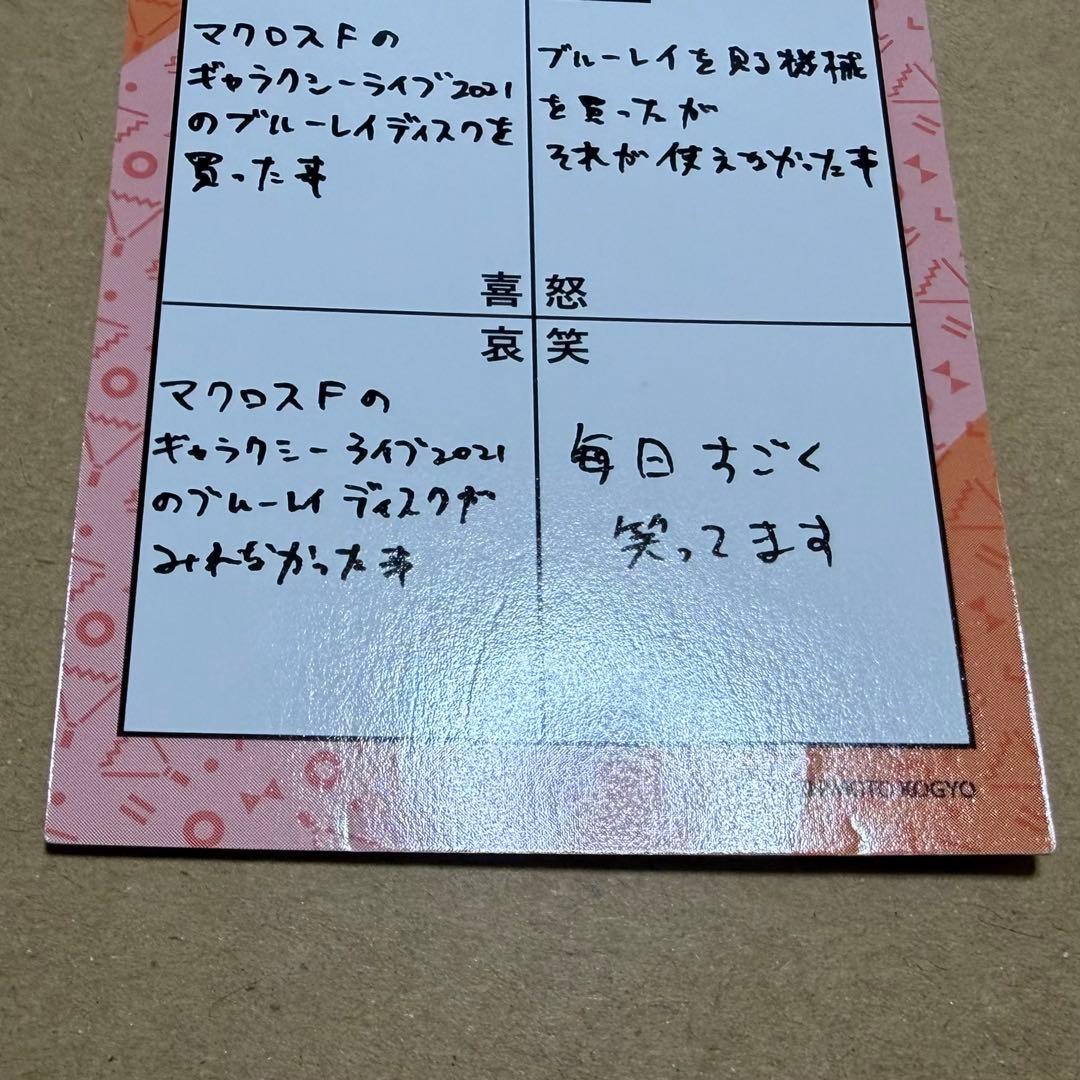 マクロスFの
ギャラクシーライブ2021
のブルーレイディスクを
買った事
ブルーレイを見る機械
を買ったが
それが使えなかった事
喜
怒
哀
笑
マクロスFの
ギャラクシーライブ2021
のブルーレイディスクが
みれなかった事
毎日すごく
笑ってます
KOGYO